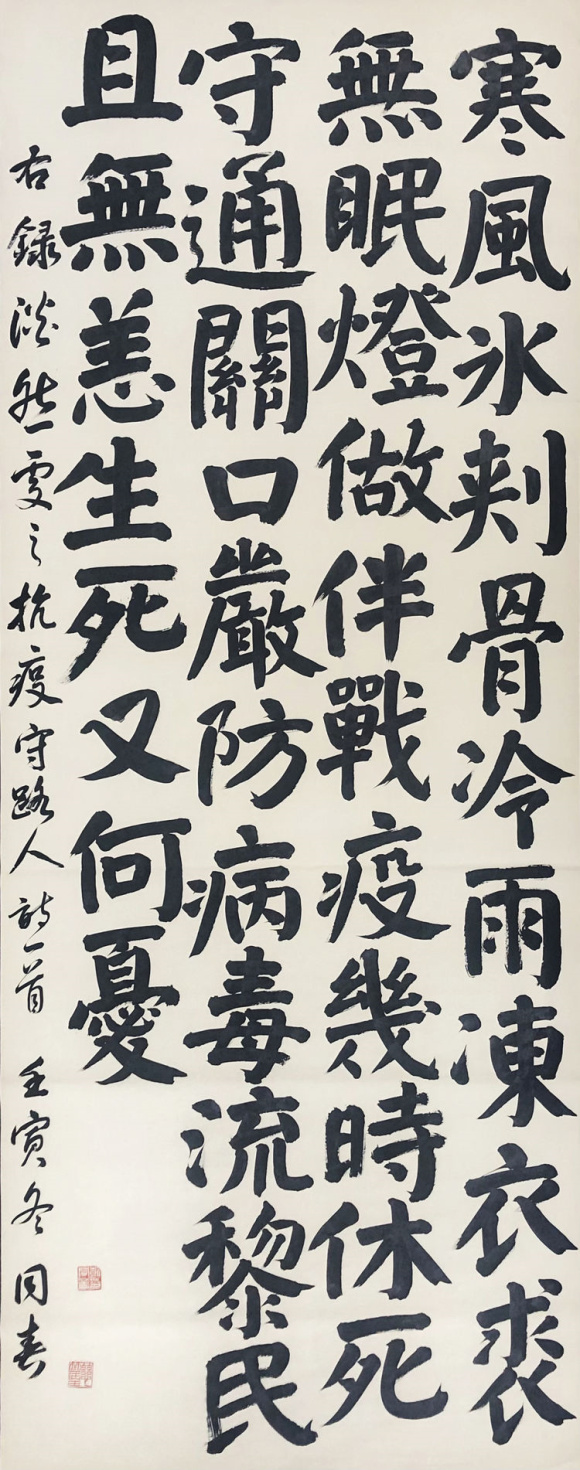 寒風氷刾骨冷雨凍衣裘
無眠燈做伴戰疫幾時休死
守通關口嚴防病毒流黎民
且無恙生死又何憂
右録淡然一雯之抗疫守路人詩一首 壬寅冬 同春